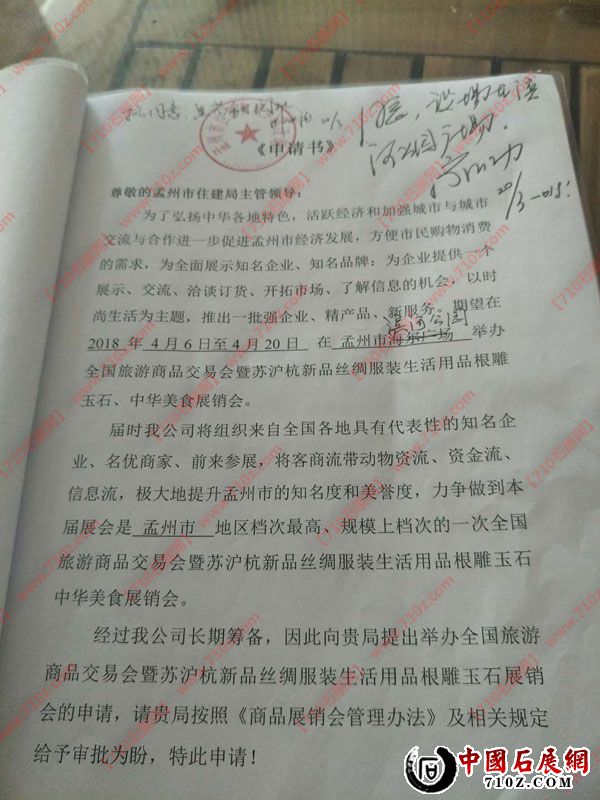 同意，设摊在滨
河公园广场.
20/3-2018
《申请书》
尊敬的孟州市住建局主管领导：
为了弘扬中华各地特色，活跃经济和加强城市与城市
交流与合作进一步促进孟州市经济发展，方便市民购物消费
的需求，为全面展示知名企业、知名品牌：为企业提供一个
展示、交流、洽谈订货、开拓市场、了解信息的机会，以时
尚生活为主题，推出一批强企业、精产品、新服务。期望在
滨河公园
2018 年 4 月 6 日至 4 月 20 日 在 孟州市海乐广场 举办
全国旅游商品交易会暨苏沪杭新品丝绸服装生活用品根雕
玉石、中华美食展销会。
届时我公司将组织来自全国各地具有代表性的知名企
业、名优商家、前来参展，将客商流带动物资流、资金流、
信息流，极大地提升孟州市的知名度和美誉度，力争做到本
届展会是 孟州市 地区档次最高、规模上档次的一次全国
旅游商品交易会暨苏沪杭新品丝绸服装生活用品根雕玉石
中华美食展销会。
经过我公司长期筹备，因此向贵局提出举办全国旅游
商品交易会暨苏沪杭新品丝绸服装生活用品根雕玉石展销
会的申请，请贵局按照《商品展销会管理办法》及相关规定
给予审批为盼，特此申请！
【710石展网】www.710z.com
中國石展網
710Z.COM